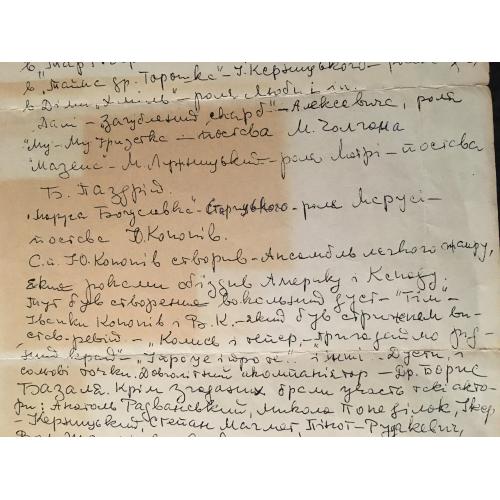 в "Тайна др. Горошка" - І. Керницького -
в Діми "Хміль" - роля Люби і ін.
Далі - Загублений скарб" - Алексевича, роля
"Му-Му - постава М. Чолгана
"Мазепа" - М. Лужницький - роля Мотрі - постава
Б. Паздрій.
"Маруся Богуславка" - Старицького - роля Марусі -
постава Ю. Кононів.
С.п. Ю. Кононів створив - Ансамбль легкого жанру,
яким роками обїздив Америку і Канаду.
Тут був створений вокальний дует - "Тім" -
Іванки Кононів і В. К. - який був стрижнем ви-
став-ревій - "Колись і тепер, - Пригадаймо рід-
ний край" - і інші. Дуети, і
сольові точки. Довголітній акомпаніятор - Др. Борис
Базала. Крім згаданих брали участь такі акто-
ри: Анатоль Радванський, Микола Понеділок, Ікер
- Керницький, Степан Пінот-Рудакевич,